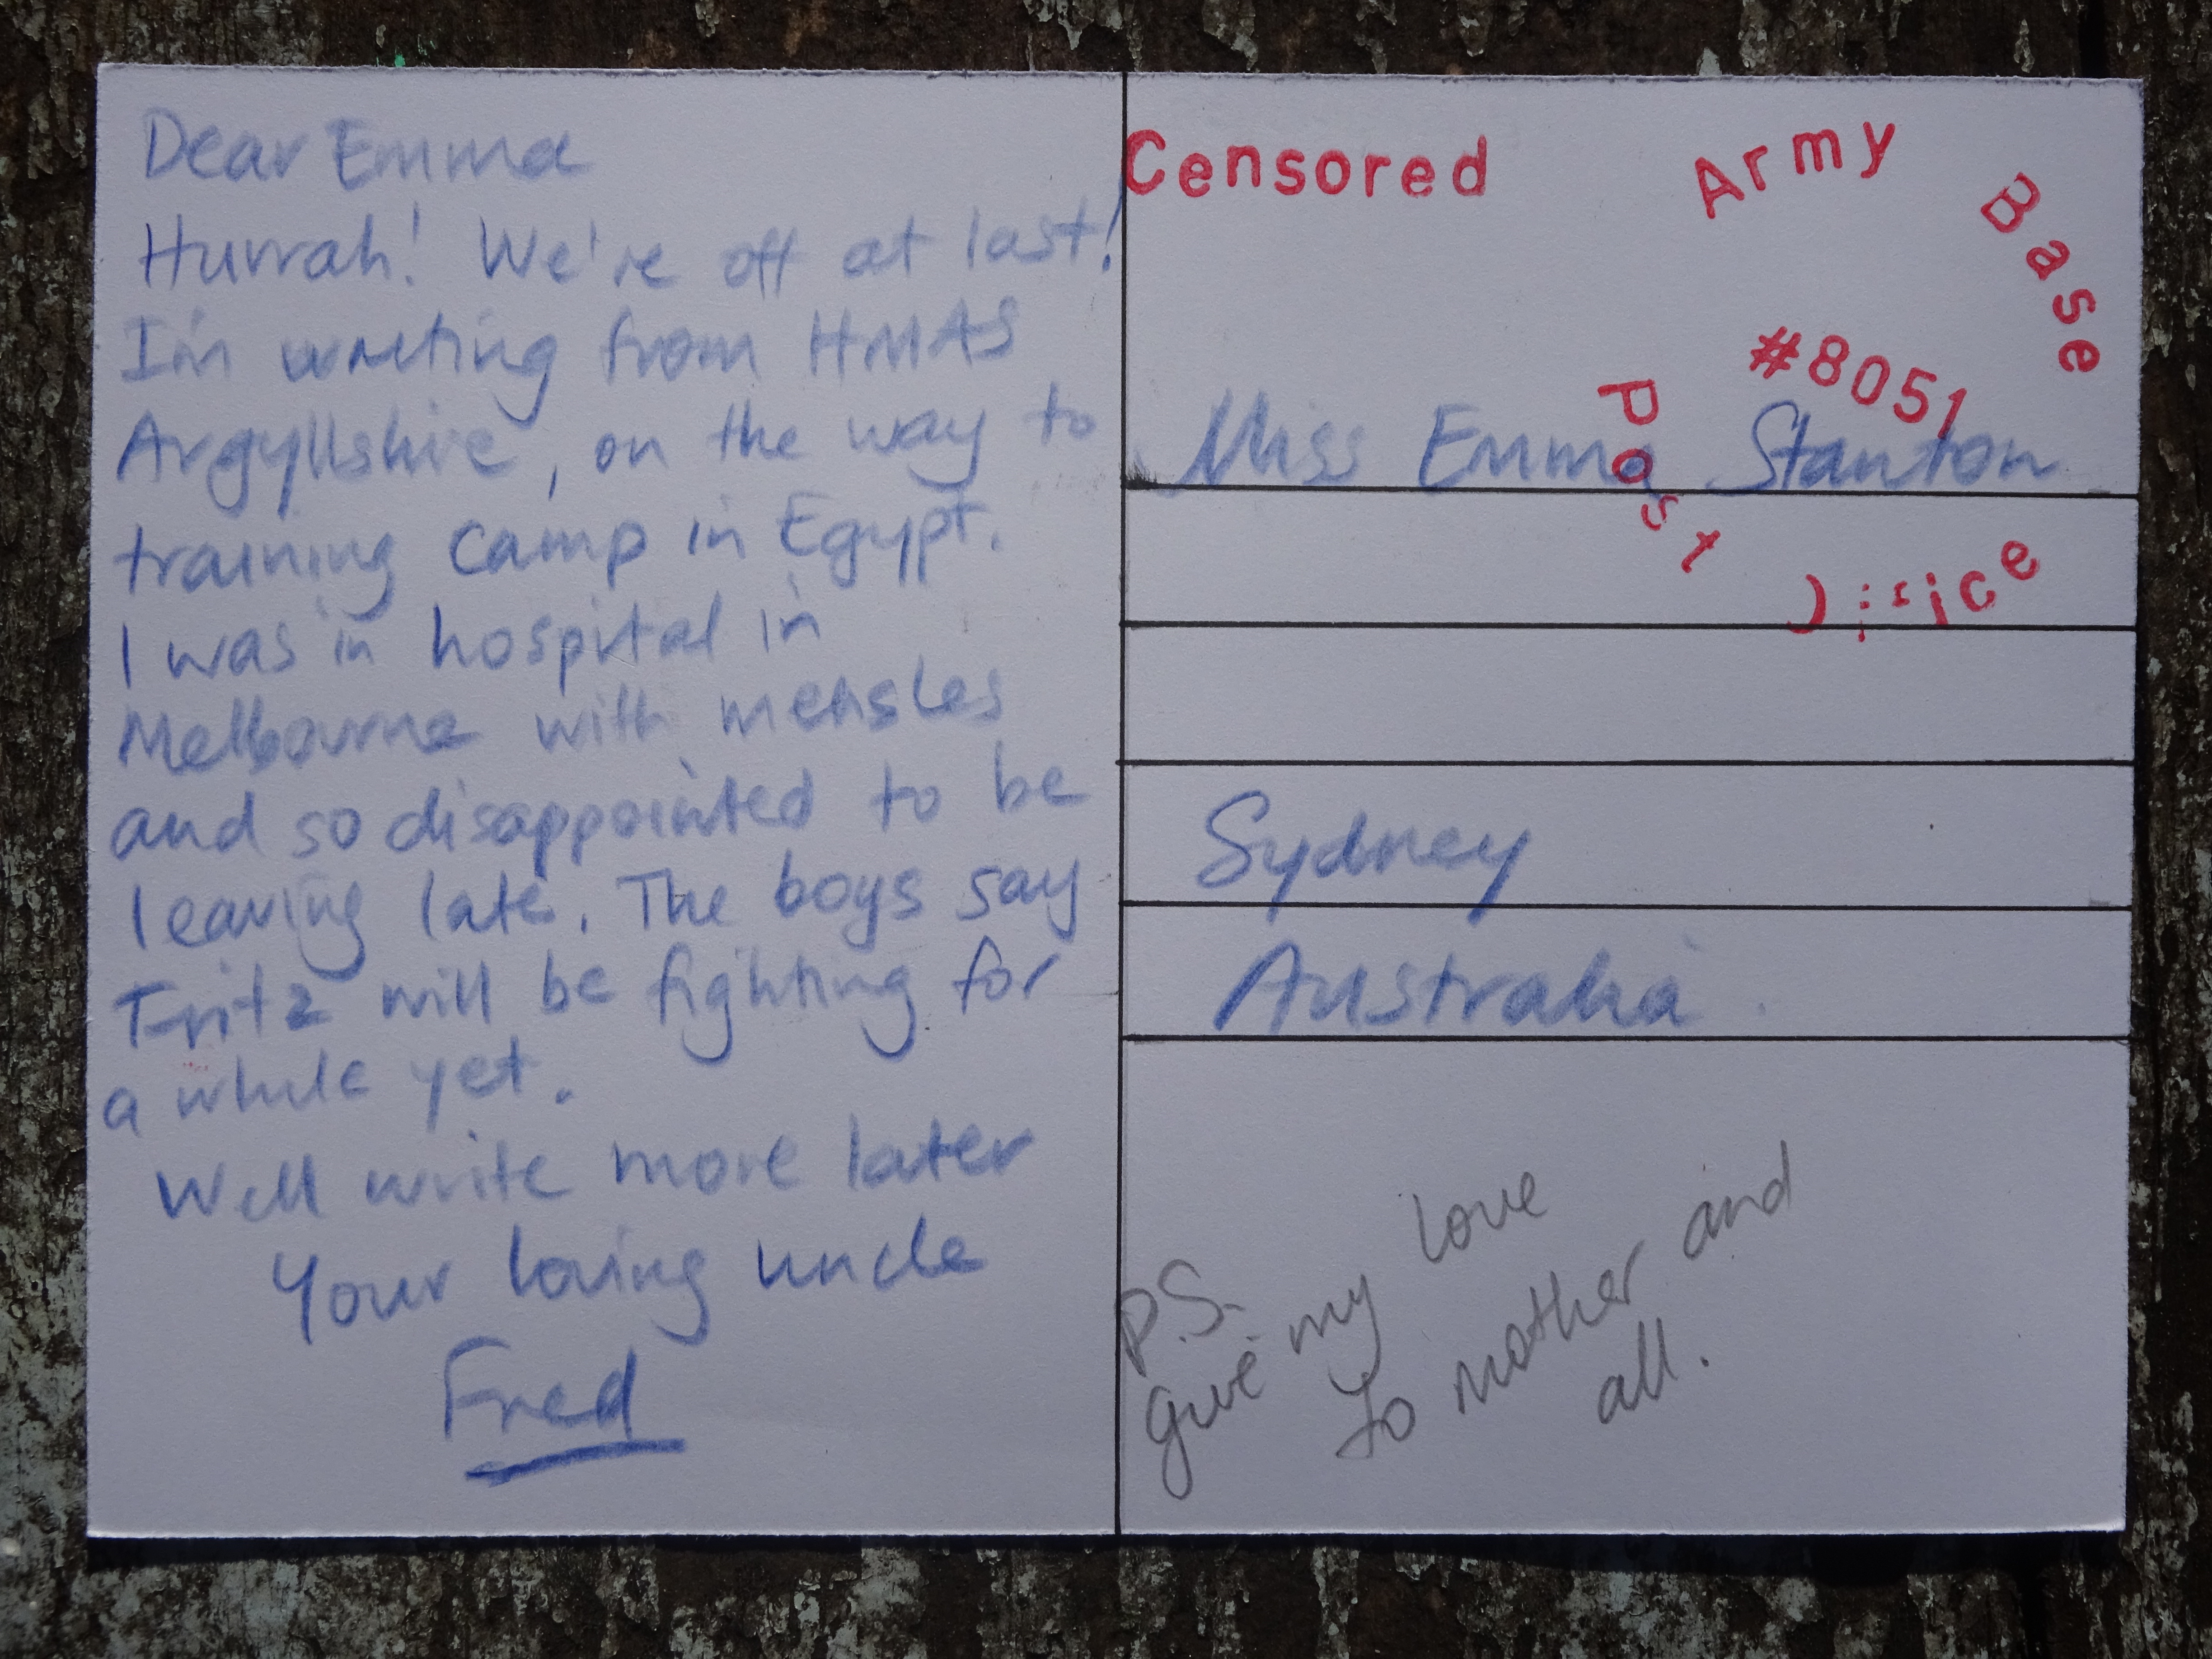 Dear Emma
Hurrah! We're off at last!
I'm writing from HMAS
Argyllshire, on the way to
training camp in Egypt.
I was in hospital in
Melbourne with measles
and so disappointed to be
leaving late. The boys say
Fritz will be fighting for
a while yet.
Well write more later
Your loving uncle
Fred
Censored
Army Base
#8051
Post Office
Miss Emma Stanton
Sydney
Australia
P.S.
give my love
to mother and
all.